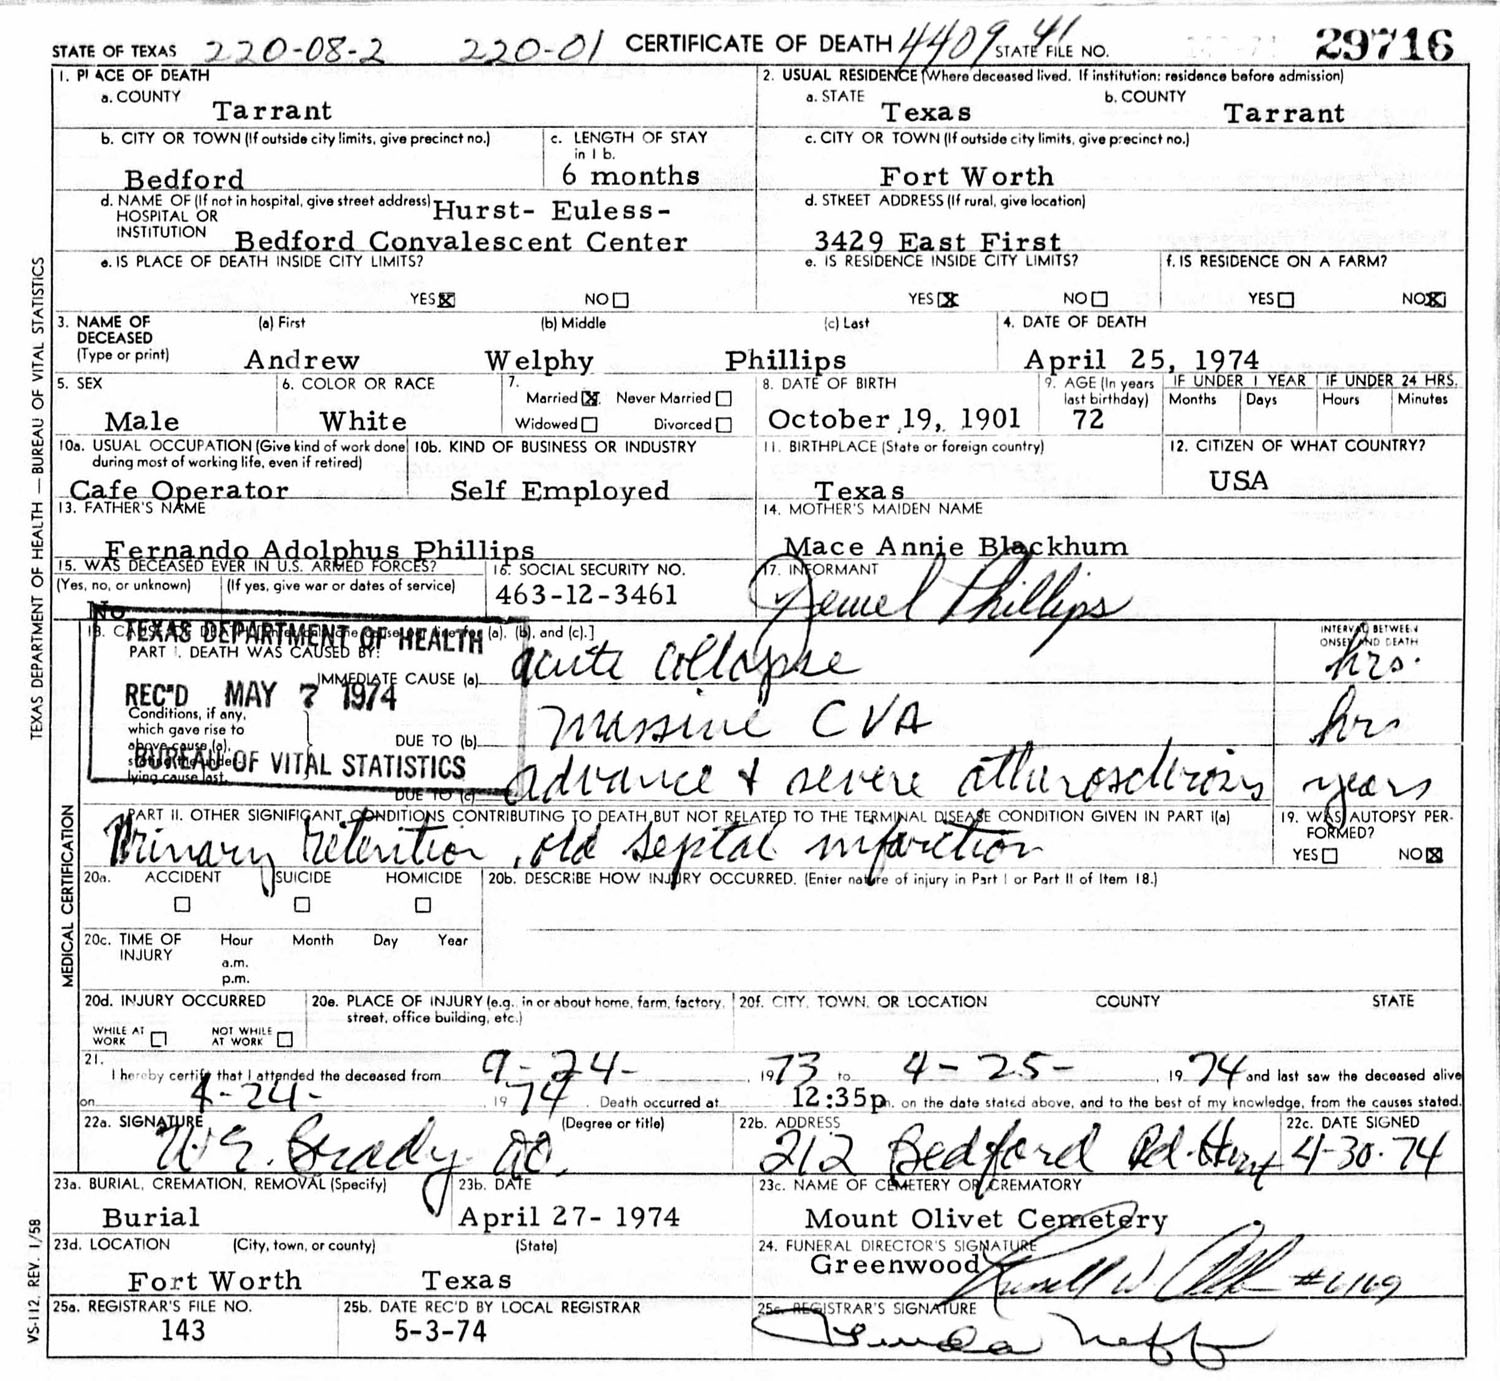 STATE OF TEXAS 220-08-2 220-01 CERTIFICATE OF DEATH 4409 41 STATE FILE NO. 29716
1. PLACE OF DEATH
a. COUNTY
Tarrant
2. USUAL RESIDENCE (Where deceased lived. If institution: residence before admission)
a. STATE b. COUNTY
Texas Tarrant
b. CITY OR TOWN (If outside city limits, give precinct no.)
Bedford
c. LENGTH OF STAY
in 1 b.
6 months
c. CITY OR TOWN (If outside city limits, give precinct no.)
Fort Worth
d. NAME OF (If not in hospital, give street address) Hurst- Euless-
HOSPITAL OR
INSTITUTION Bedford Convalescent Center
d. STREET ADDRESS (If rural, give location)
3429 East First
e. IS PLACE OF DEATH INSIDE CITY LIMITS?
YES X NO
e. IS RESIDENCE INSIDE CITY LIMITS?
YES X NO
f. IS RESIDENCE ON A FARM?
YES NO X
3. NAME OF (a) First (b) Middle (c) Last
DECEASED
(Type or print) Andrew Welphy Phillips
4. DATE OF DEATH
April 25, 1974
5. SEX
Male
6. COLOR OR RACE
White
7.
Married X Never Married
Widowed Divorced
8. DATE OF BIRTH
October 19, 1901
9. AGE (In years
last birthday)
72
IF UNDER 1 YEAR IF UNDER 24 HRS.
Months Days Hours Minutes
10a. USUAL OCCUPATION (Give kind of work done
during most of working life, even if retired)
Cafe Operator
10b. KIND OF BUSINESS OR INDUSTRY
Self Employed
11. BIRTHPLACE (State or foreign country)
Texas
12. CITIZEN OF WHAT COUNTRY?
USA
13. FATHER'S NAME
Fernando Adolphus Phillips
14. MOTHER'S MAIDEN NAME
Mace Annie Blackhum
15. WAS DECEASED EVER IN U.S. ARMED FORCES?
(Yes, no, or unknown) (If yes, give war or dates of service)
No
16. SOCIAL SECURITY NO.
463-12-3461
17. INFORMANT
Jewel Phillips
TEXAS DEPARTMENT OF HEALTH
REC'D MAY 7 1974
BUREAU OF VITAL STATISTICS
(a), (b), and (c).]
PART I. DEATH WAS CAUSED BY:
IMMEDIATE CAUSE (a) acute collapse
INTERVAL BETWEEN
ONSET AND DEATH
hrs.
Conditions, if any,
which gave rise to
above cause (a),
stating the under-
lying cause last.
DUE TO (b) massive CVA hrs
DUE TO (c) advance & severe atherosclerosis years
PART II. OTHER SIGNIFICANT CONDITIONS CONTRIBUTING TO DEATH BUT NOT RELATED TO THE TERMINAL DISEASE CONDITION GIVEN IN PART I(a)
Urinary Retention, old septal infarction
19. WAS AUTOPSY PER-
FORMED?
YES NO X
20a. ACCIDENT SUICIDE HOMICIDE
20b. DESCRIBE HOW INJURY OCCURRED. (Enter nature of injury in Part I or Part II of Item 18.)
20c. TIME OF Hour Month Day Year
INJURY a.m.
p.m.
20d. INJURY OCCURRED
WHILE AT WORK NOT WHILE AT WORK
20e. PLACE OF INJURY (e.g., in or about home, farm, factory,
street, office building, etc.)
20f. CITY, TOWN, OR LOCATION COUNTY STATE
21.
I hereby certify that I attended the deceased from 9-24- , 1973 to 4-25- , 1974 and last saw the deceased alive
on 4-24- 1974. Death occurred at 12:35p m. on the date stated above, and to the best of my knowledge, from the causes stated.
22a. SIGNATURE (Degree or title)
W G. Brady DO.
22b. ADDRESS
212 Bedford Rd. Hurst
22c. DATE SIGNED
4-30-74
23a. BURIAL, CREMATION, REMOVAL (Specify)
Burial
23b. DATE
April 27- 1974
23c. NAME OF CEMETERY OR CREMATORY
Mount Olivet Cemetery
23d. LOCATION (City, town, or county) (State)
Fort Worth Texas
24. FUNERAL DIRECTOR'S SIGNATURE
Greenwood Russell W. #6169
25a. REGISTRAR'S FILE NO.
143
25b. DATE REC'D BY LOCAL REGISTRAR
5-3-74
25c. REGISTRAR'S SIGNATURE
Neff
TEXAS DEPARTMENT OF HEALTH — BUREAU OF VITAL STATISTICS
MEDICAL CERTIFICATION
VS-112. REV. 1/58